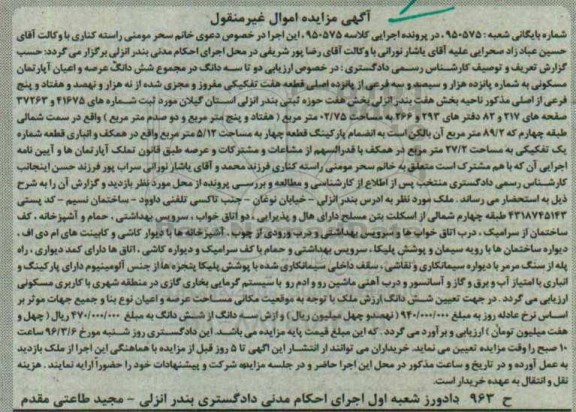 آگهی مزایده اموال غیرمنقول
شماره بایگانی شعبه : ۹۵۰۵۷۵ ، در پرونده اجرایی کلاسه ۹۵۰۵۷۵ ، این اجرا در خصوص دعوی خانم سحر مومنی راسته کناری با وکالت آقای
حسین عباد زاد صحرایی علیه آقای یاشار نورانی با وکالت آقای رضا پور شریفی در محل اجرای احکام مدنی بندر انزلی برگزار می گردد: حسب
گزارش تعریف و توصیف کارشناس رسمی دادگستری : در خصوص ارزیابی دو تا سه دانگ در مجموع شش دانگ عرصه و اعیان آپارتمان
مسکونی به شماره پانزده هزار و سیصد و فرعی از پانزده اصلی قطعه هفت تفکیکی مفروز و مجزی شده از نه هزار و نهصد و هفتاد و پنج
فرعی از اصلی مذکور ناحیه بخش هفت بندر انزلی بخش هفت حوزه ثبتی بندر انزلی استان گیلان مورد ثبت شماره های ۴۱۶۷۵ و ۳۷۲۶۳
صفحه های ۲۱۷ و ۸۲ دفتر های ۲۹۳ و ۲۶۶ به مساحت ۰۲/۷۵ متر مربع ( هفتاد و پنج متر مربع و دو صدم متر مربع ) واقع در سمت شمالی
طبقه چهارم که ۸۹/۲ متر مربع آن بالکن است به انضمام پارکینگ قطعه چهار به مساحت ۵/۱۲ متر مربع واقع در همکف و انباری قطعه شماره
یک تفکیکی به مساحت ۲۷/۲ متر مربع در همکف با قدرالسهم از مشاعات و مشترکات و عرصه طبق قانون تملک آپارتمان ها و آیین نامه
اجرایی آن که با هم مشترک است متعلق به خانم سحر مومنی راسته کناری فرزند محمد و آقای یاشار نورانی سراب پور فرزند حسن اینجانب
کارشناس رسمی دادگستری منتخب پس از اطلاع از کارشناسی و مطالعه و بررسی پرونده از محل مورد نظر بازدید و گزارش آن را به شرح
ذیل به استحضار می رساند . ملک مورد نظر به ادرس بندر انزلی - خیابان نوغان - جنب تاکسی تلفنی داوود - ساختمان نسیم - کد پستی
۴۳۱۸۷۴۵۱۴۳ طبقه چهارم شمالی از اسکلت بتن مسلح دارای هال و پذیرایی ، دو اتاق خواب ، سرویس بهداشتی ، حمام و آشپزخانه ، کف
ساختمان از سرامیک ، درب اتاق خواب ها و سرویس بهداشتی و درب ورودی از چوب، آشپزخانه ها با دیوار کاشی و کابینت های ام دی اف ،
دیواره ساختمان ها با رویه سیمان و پوشش پلیکا ، سرویس بهداشتی و حمام با کف سرامیک و دیواره کاشی ، اتاق ها دارای کمد دیواری ، راه
پله از سنگ مرمر با دیواره سیمانکاری و نقاشی ، سقف داخلی سیمانکاری شده با پوشش پلیکا پنجره ها از جنس آلومینیوم دارای پارکینگ و
انباری با امتیاز آب و برق و گاز و آسانسور و درب آهنی ماشین رو و آدم رو با سیستم گرمایی بخاری گازی در منطقه شهری با کاربری مسکونی
ارزیابی می گردد . در جهت تعیین شش دانگ ارزش ملک با توجه به موقعیت مکانی مساحت عرصه و اعیان نوع بنا و جمیع جهات موثر بر
اساس نرخ عادله روز به مبلغ ۹۴۰/۰۰۰/۰۰۰ (نهصدو چهل میلیون ریال ) و ارزش سه دانگ از شش دانگ به مبلغ ۴۷۰/۰۰۰/۰۰۰ ریال (چهل و
هفت میلیون تومان ) ارزیابی و برآورد می گردد . که این مبلغ قیمت پایه مزایده می باشد. این دادگستری روز شنبه مورخ ۹۶/۳/۶ ساعت
۱۰ صبح را وقت مزایده تعیین می نماید. خریداران می توانند از انتشار این آگهی تا ۵ روز قبل از مزایده با هماهنگی این اجرا از ملک بازدید
به عمل آورده و در تاریخ و ساعت مذکور در محل این اجرا حاضر و در جلسه مزایده شرکت و پیشنهادات خود را حضوراً ارایه نمایند . هزینه
نقل و انتقال به عهده خریدار است.
ح ۹۶۳ دادورز شعبه اول اجرای احکام مدنی دادگستری بندر انزلی - مجید طاعتی مقدم